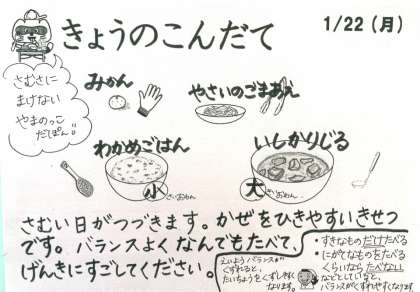 きょうのこんだて
1/22(月)
さむさに
まけない
やまのっこ
だぽん!!
みかん
やさいのごまあえ
わかめごはん
いしかりじる
小
さいおわん
大
きいおわん
さむい日がつづきます。かぜをひきやすいきせつ
です。バランスよくなんでもたべて、
げんきにすごしてください。
えいようバランスが
くずれると、
たいちょうをくずしやすく
なります。
・すきなものだけたべる
・にがてなものをたべる
くらいなら たべない
などとしていると、
バランスがくずれやすくなります